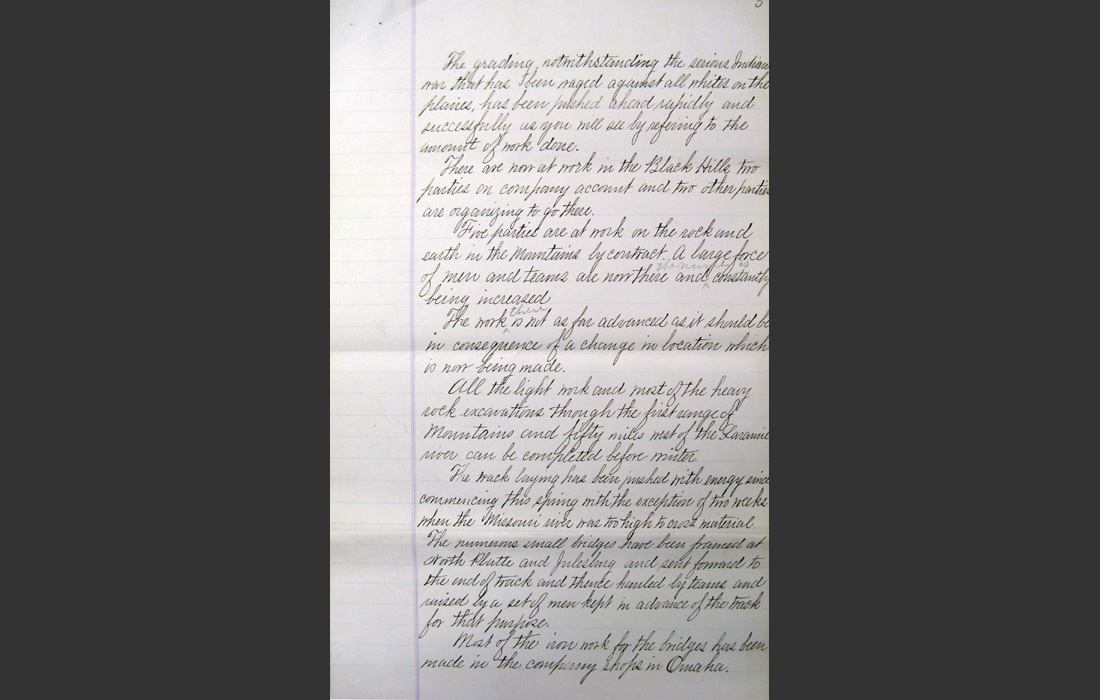 The grading, notwithstanding the serious Indian
war that has been waged against all whites on the
plaines, has been pushed ahead rapidly and
successfully as you will see by refering to the
amount of work done.
There are now at work in the Black Hills two
parties on company account and two other parties
are organizing to go there.
Five parties are at work on the rock and
earth in the Mountains by contract. A large force
of men and teams are now there and constantly
being increased
there
The work is not as far advanced as it should be
in consequence of a change in location which
is now being made.
All the light work and most of the heavy
rock excavations through the first range of
Mountains and fifty miles west of the Laramie
river can be completed before winter
The track laying has been pushed with energy since
commencing this spring with the exception of two weeks
when the Missouri river was too high to cross material
The numerous small bridges have been framed at
North Platte and Julesburg and sent forward to
the end of track and thence hauled by teams and
raised by a set of men kept in advance of the track
for that purpose.
Most of the iron work for the bridges has been
made in the company shops in Omaha.